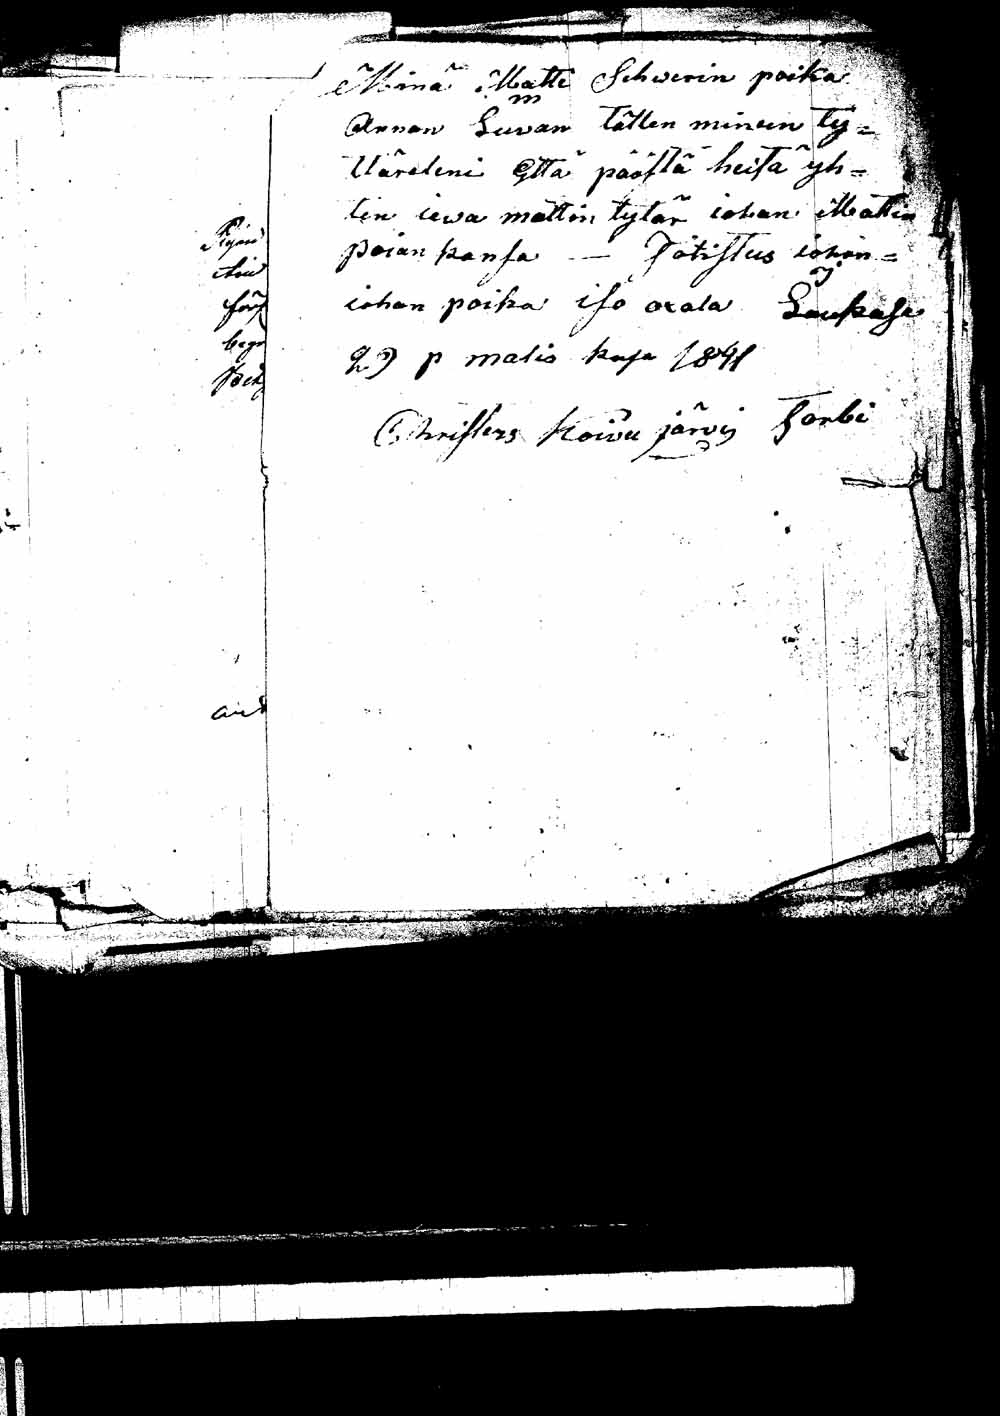 Minä Matti Schwerin poika
m
Annan Luvan tällen minun ty=
ttäreleni Että päästä heitä yh=
ten iewa mattin tytär iohan Mattin
poian kansa — Totistus iohan=
iohan poika iso oxala Laukasa
29 p malis kuja 1841
Christers Koivu järvij Torbi